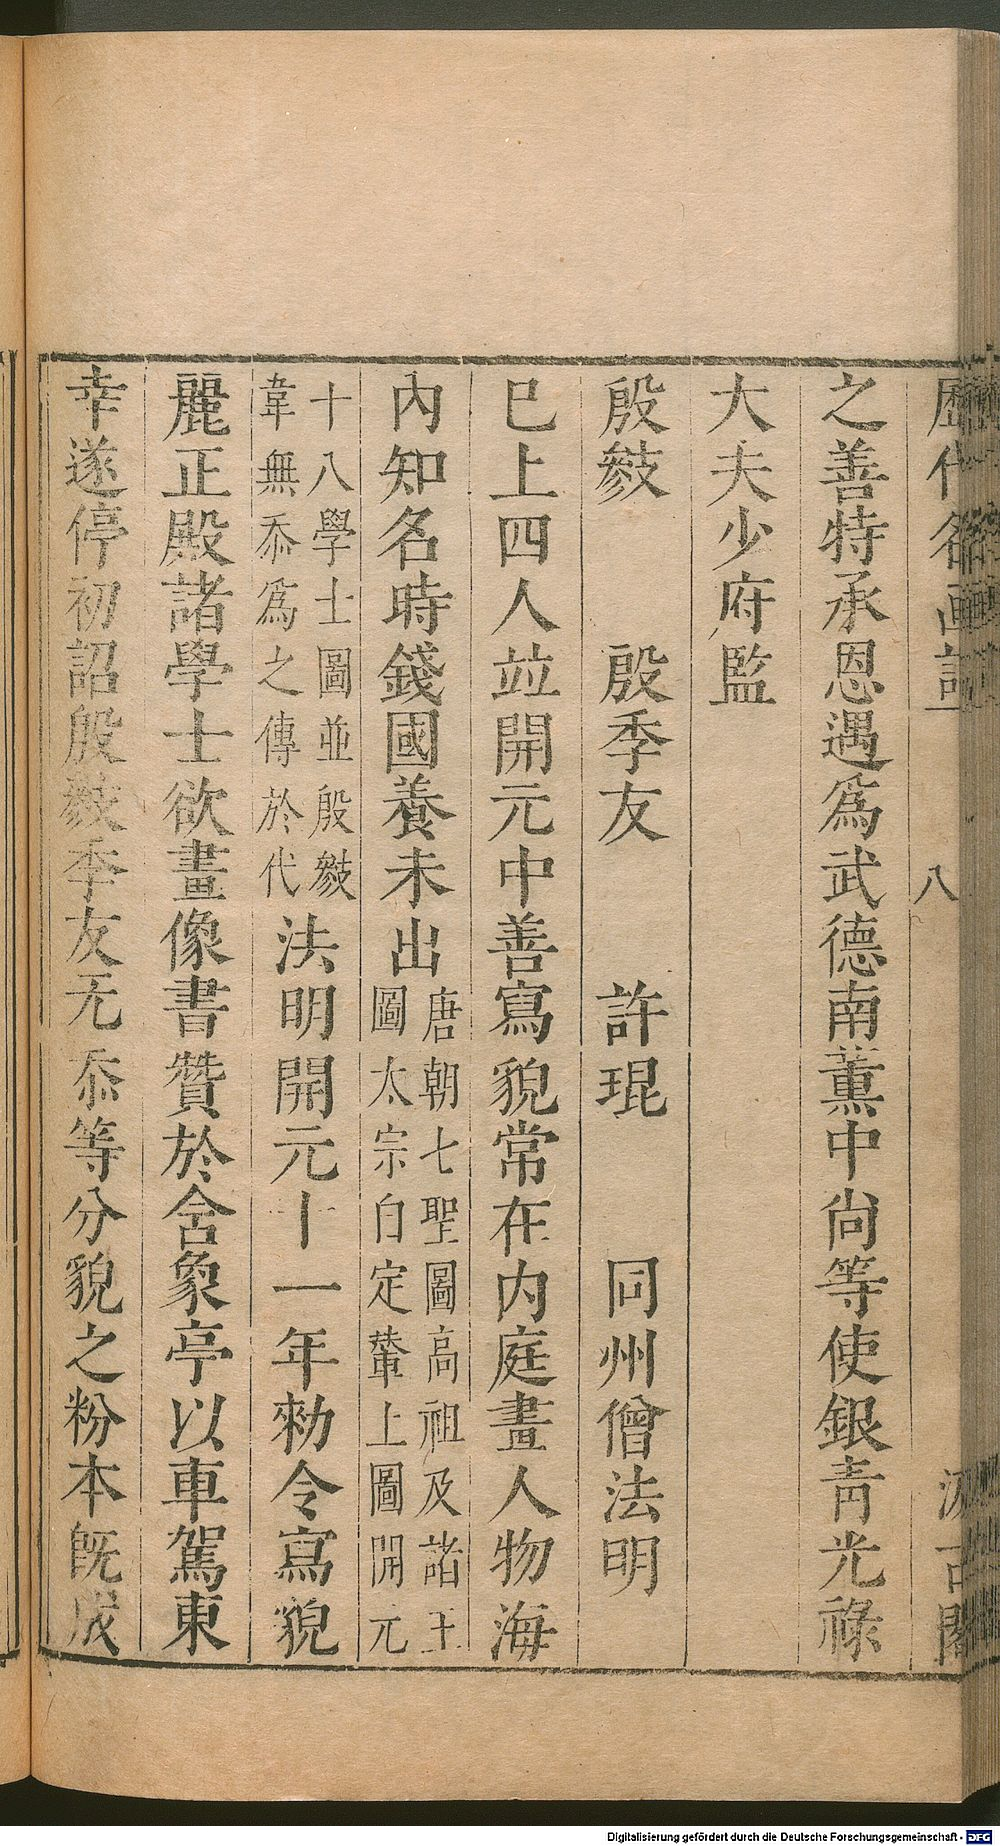 歷代名画記 八 汲古閣
之善特承恩遇爲武德南薰中尚等使銀靑光祿
大夫少府監
殷㪇 殷季友 許琨 同州僧法明
巳上四人竝開元中善寫貌常在内庭畫人物海
內知名時錢國養未出
唐朝七聖圖高祖及諸王
圖太宗自定輦上圖開元
十八學士圖並殷㪇
韋無忝爲之傳於代
法明開元十一年勑令寫貌
麗正殿諸學士欲畫像書贊於含象亭以車駕東
幸遂停初詔殷㪇季友无忝等分貌之粉本旣成
Digitalisierung gefördert durch die Deutsche Forschungsgemeinschaft - DFG